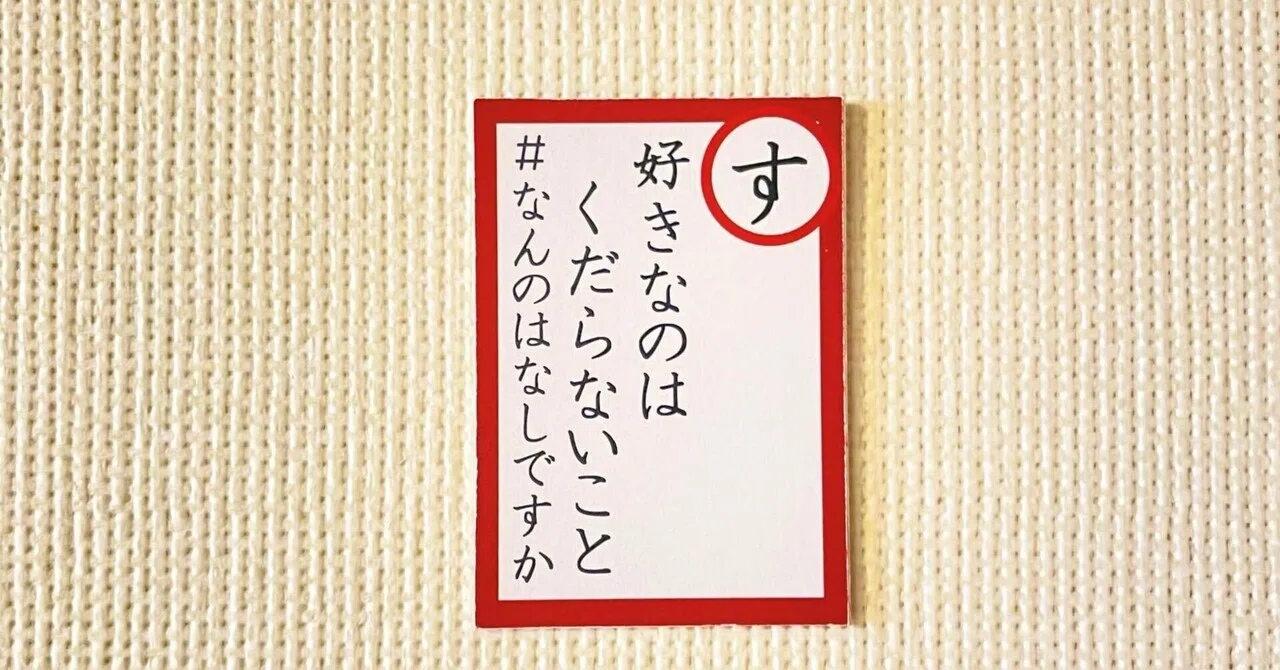 す
好きなのは
くだらないこと
#なんのはなしですか